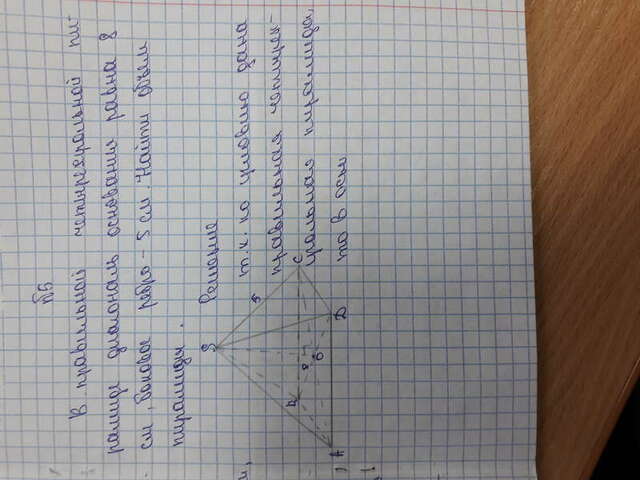 №5
В правильной четырехугольной пи-
рамиде диагональ основания равна 8
см, боковое ребро - 5 см. Найти объем
пирамиды.
Решение
т.к. по условию дана
правильная четырех-
угольная пирамида,
то в осн
S
5
C
B
8
O
A
D